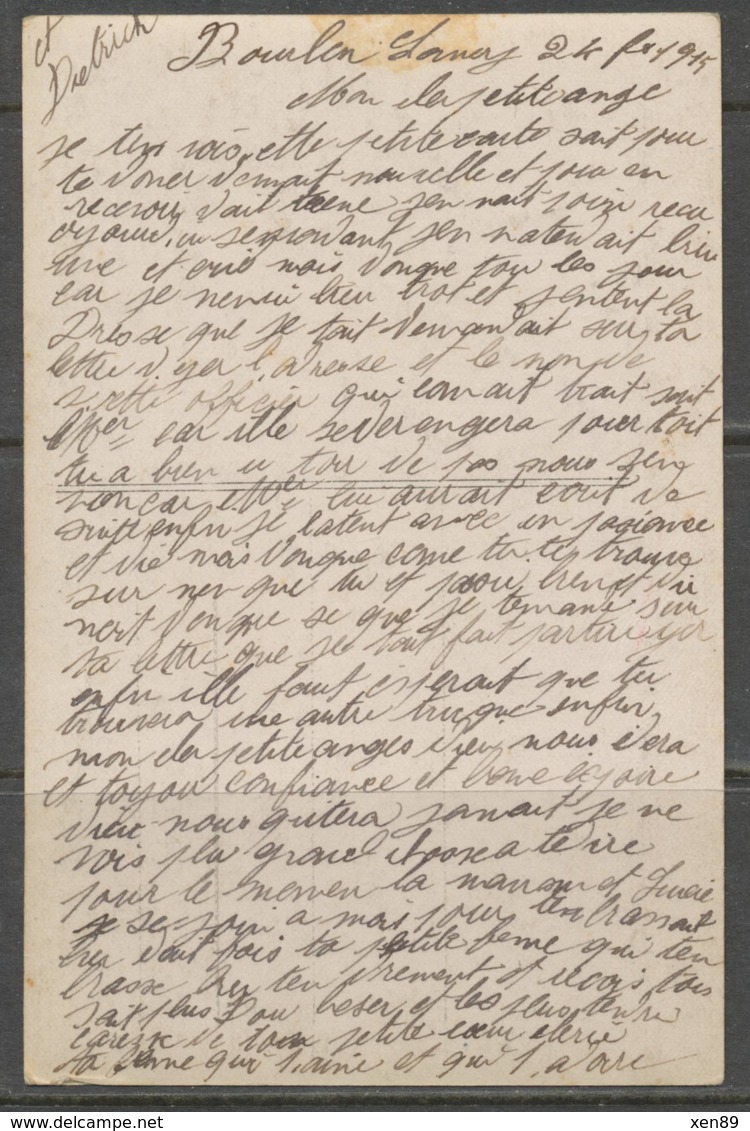 et
Dietrich
Bourbon Lancy 24 1915
Mon cher petit ange
je ten vois cette petite carte sait pour
te doner demait nouvelle et pour en
recevoir dait tiene jen nait poin recu
ojourdui sependant jen natendait bien
une et cri mois donque tou les jour
car je nenvui bien trot et jentent la
Dresse que je tait demandait sur ta
lettre dyer l'adresse et le non de
sette officier qui conait trait
car ille se derangera pour toit
tu a bien u tor de pas nous
car lui aurait ecrit de
suitte enfin je latent avec in pasience
et die mois donque come tu te trouve
sur nen que tu et
donque se que je temande sur
ta lettre que je tait fait partir yer
enfin ille faut esperait que tu
trouvera une autre truque enfin
mon cher petite anges dieu nous edera
et toujou confiance et bone espoire
dieu nous quitera jamait je ne
vois plu grand chosea te dire
pour le momen la maman et Lucie
se join a mois pour ten brassait
bien dait fois ta petite feme qui ten
brasse bien tendrement et recois tois
sait plus Dou beser et les plus tendre
caresse de ton petite coeur cherie
ta feme qui t,aime et qui t,adore
xen89